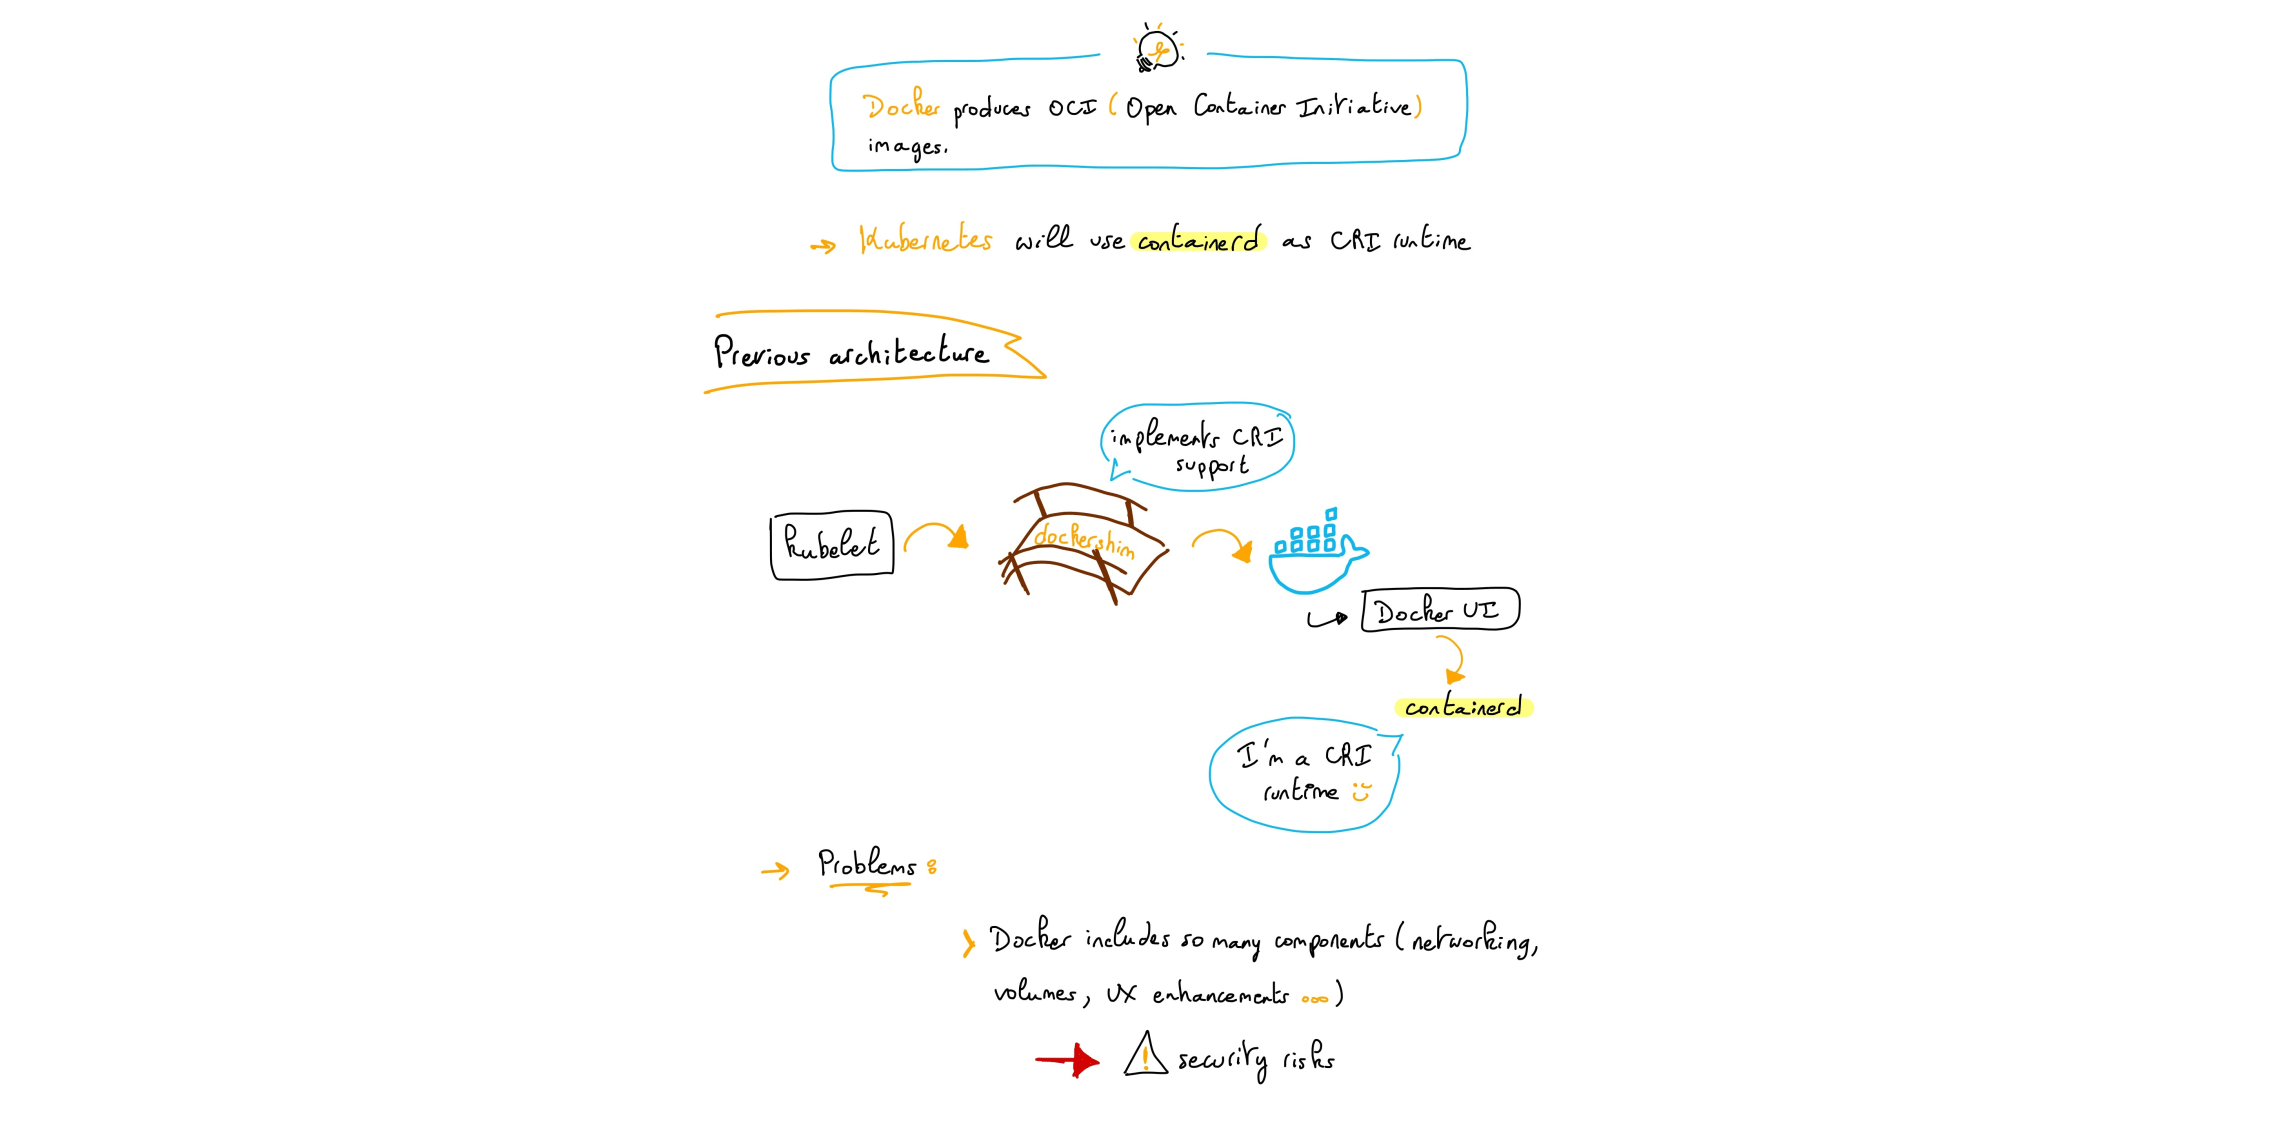 Docker produces OCI (Open Container Initiative)
images.
Kubernetes will use containerd as CRI runtime
Previous architecture
implements CRI
support
kubelet
dockershim
Docker UI
containerd
I'm a CRI
runtime
Problems:
Docker includes so many components (networking,
volumes, UX enhancements ...)
! security risks